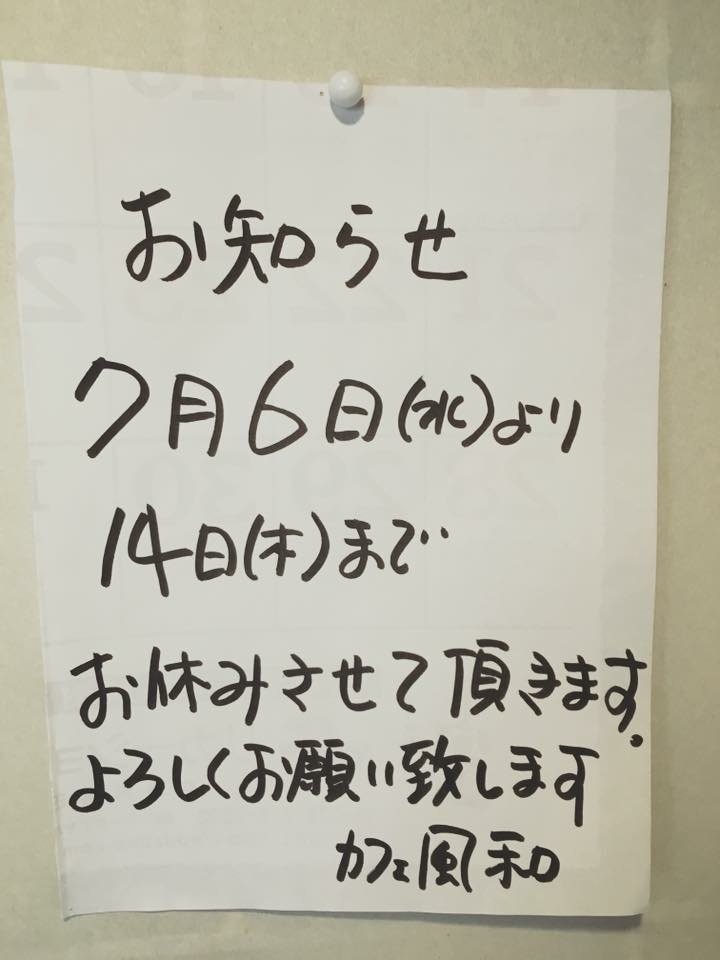 お知らせ
7月6日(水)より
14日(木)まで
お休みさせて頂きます.
よろしくお願い致します
カフェ風和